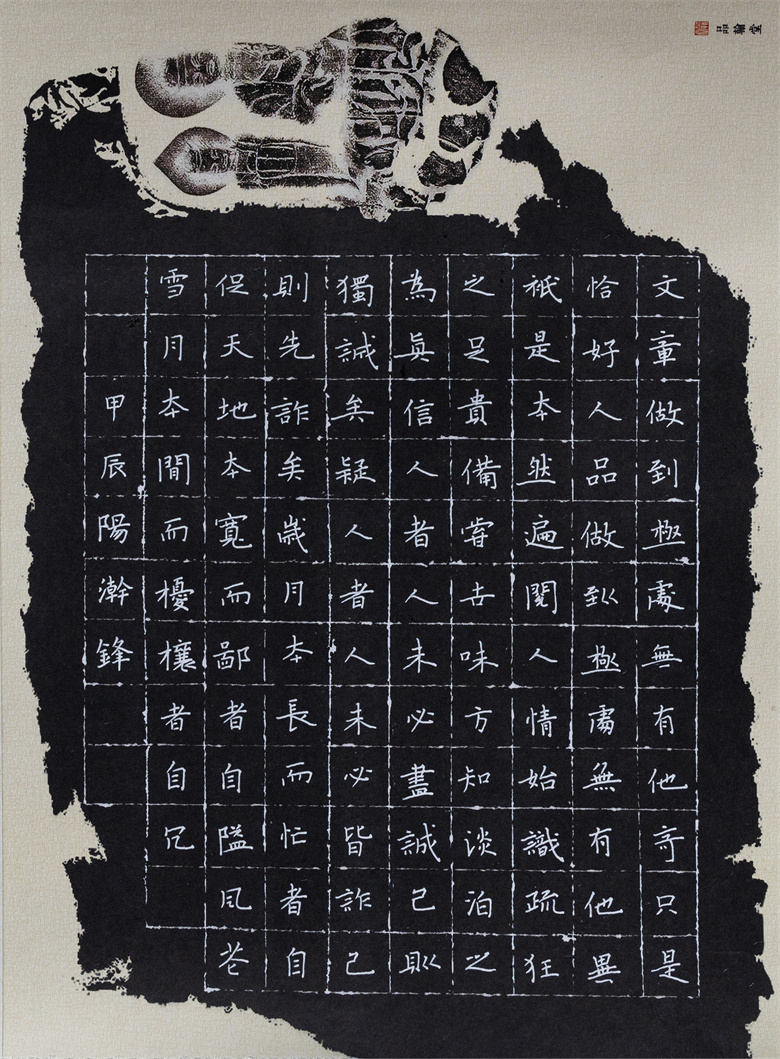 品翰堂
文章做到極處無有他竒只是
恰好人品做到極處無有他異
祇是本然遍閱人情始識疏狂
之足貴備嘗世味方知淡泊之
為眞信人者人未必盡誠己則
獨誠矣疑人者人未必皆詐己
則先詐矣歲月本長而忙者自
促天地本寬而鄙者自隘風花
雪月本閒而擾攘者自冗
甲辰陽瀚鋒